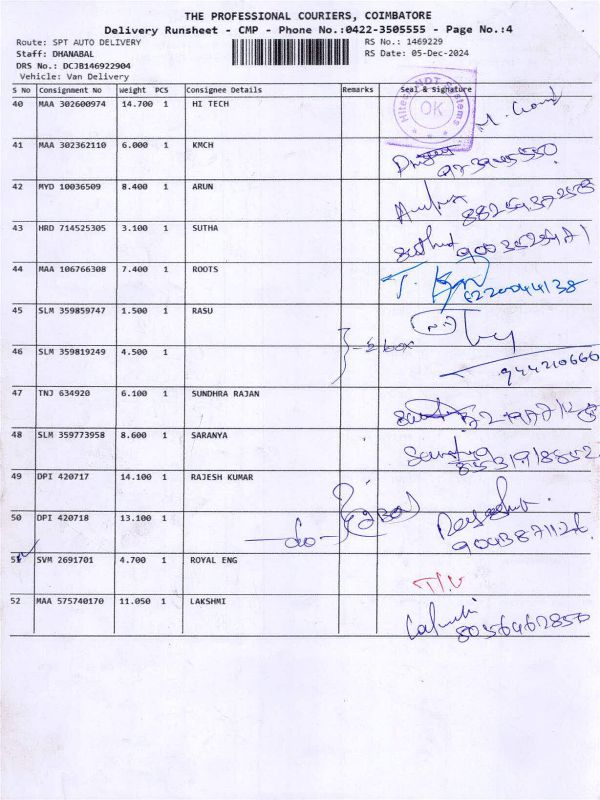 THE PROFESSIONAL COURIERS, COIMBATORE
Delivery Runsheet - CMP - Phone No.:0422-3505555 - Page No.:4
Route: SPT AUTO DELIVERY RS No.: 1469229
Staff: DHANABAL RS Date: 05-Dec-2024
DRS No.: DCJB146922904
Vehicle: Van Delivery
S No Consignment No Weight PCS Consignee Details Remarks Seal & Signature
40 MAA 302600974 14.700 1 HI TECH
OK
41 MAA 302362110 6.000 1 KMCH
42 MYD 10036509 8.400 1 ARUN
43 HRD 714525305 3.100 1 SUTHA
44 MAA 106766308 7.400 1 ROOTS
45 SLM 359859747 1.500 1 RASU
2 box
46 SLM 359819249 4.500 1
944210666
47 TNJ 634920 6.100 1 SUNDHRA RAJAN
48 SLM 359773958 8.600 1 SARANYA
49 DPI 420717 14.100 1 RAJESH KUMAR
50 DPI 420718 13.100 1
-do-
51 SVM 2691701 4.700 1 ROYAL ENG
52 MAA 575740170 11.050 1 LAKSHMI
8056462850